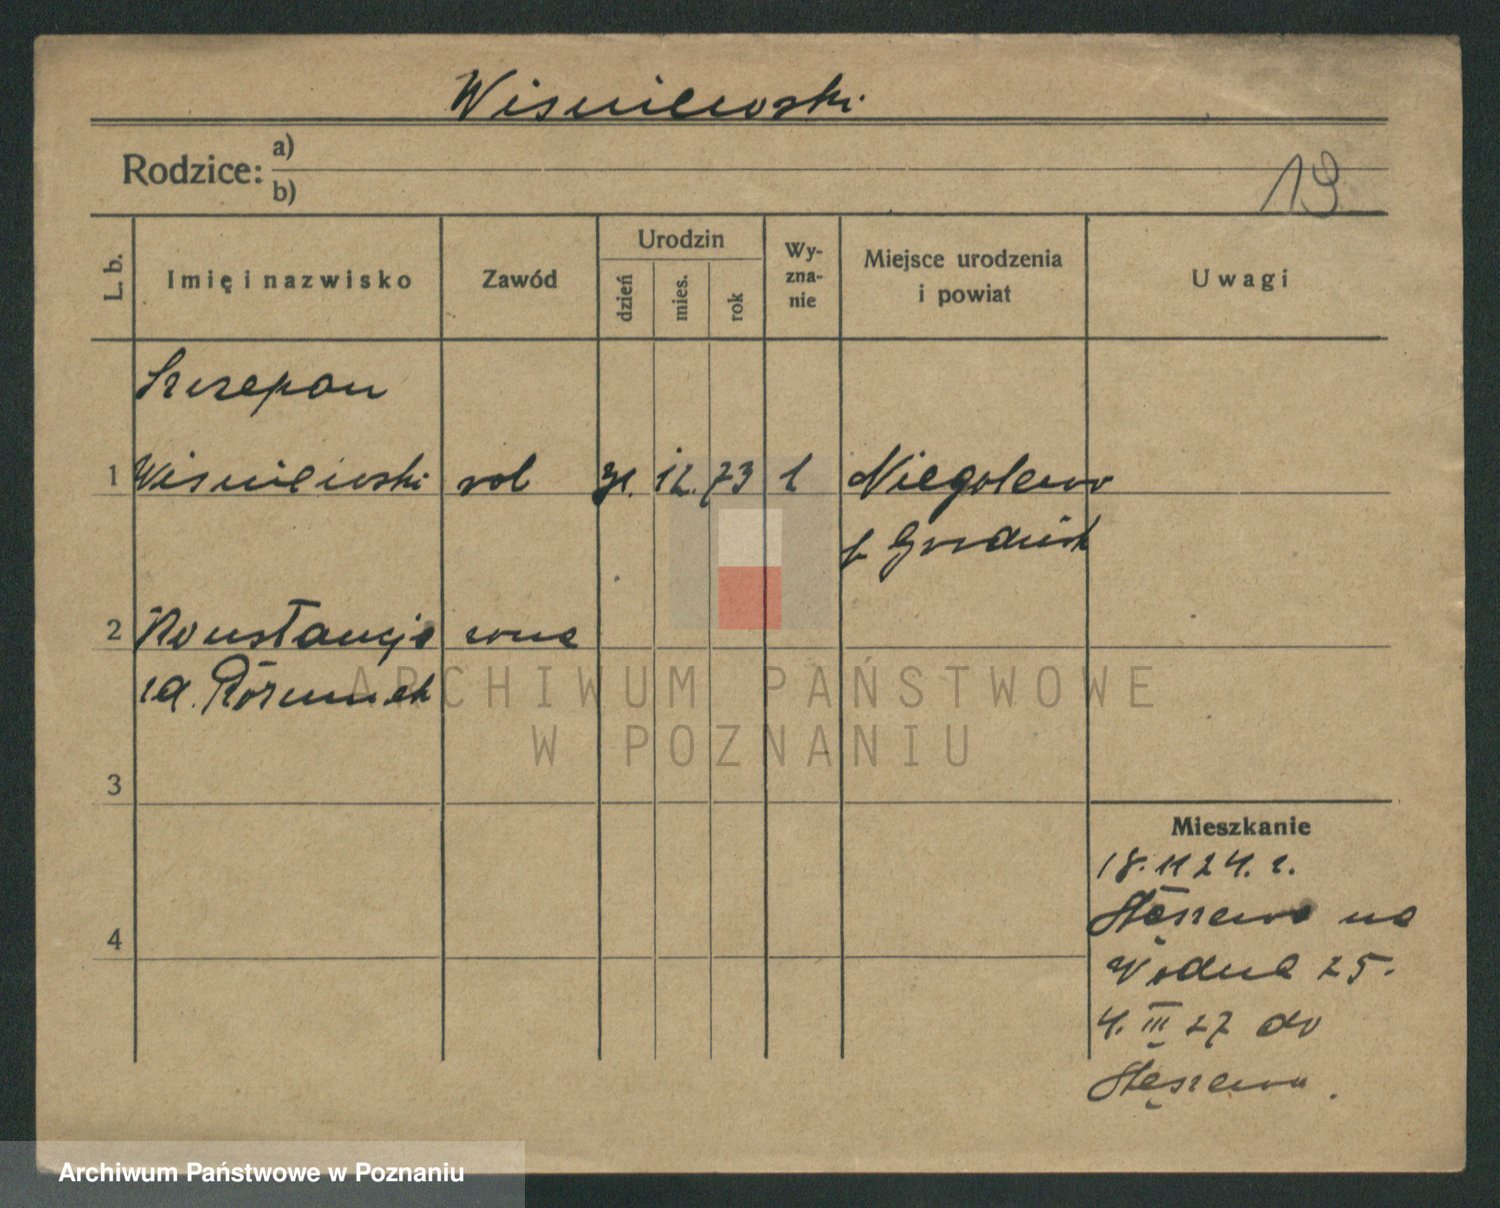 Wiśniewski
Rodzice: a)
b)
19
L. b.
Imię i nazwisko
Zawód
Urodzin
dzień
mies.
rok
Wy-
zna-
nie
Miejsce urodzenia
i powiat
Uwagi
Szczepan
1 Wiśniewski rob 31. 12. 73 k Niegolewo
p Grodzisk
2 Konstancja żona
3
4
Mieszkanie
18. 11 24. z.
Stęszewa na
Wodna 25.
4. III 27 do
Stęszewa.
ARCHIWUM PAŃSTWOWE
W POZNANIU
Archiwum Państwowe w Poznaniu